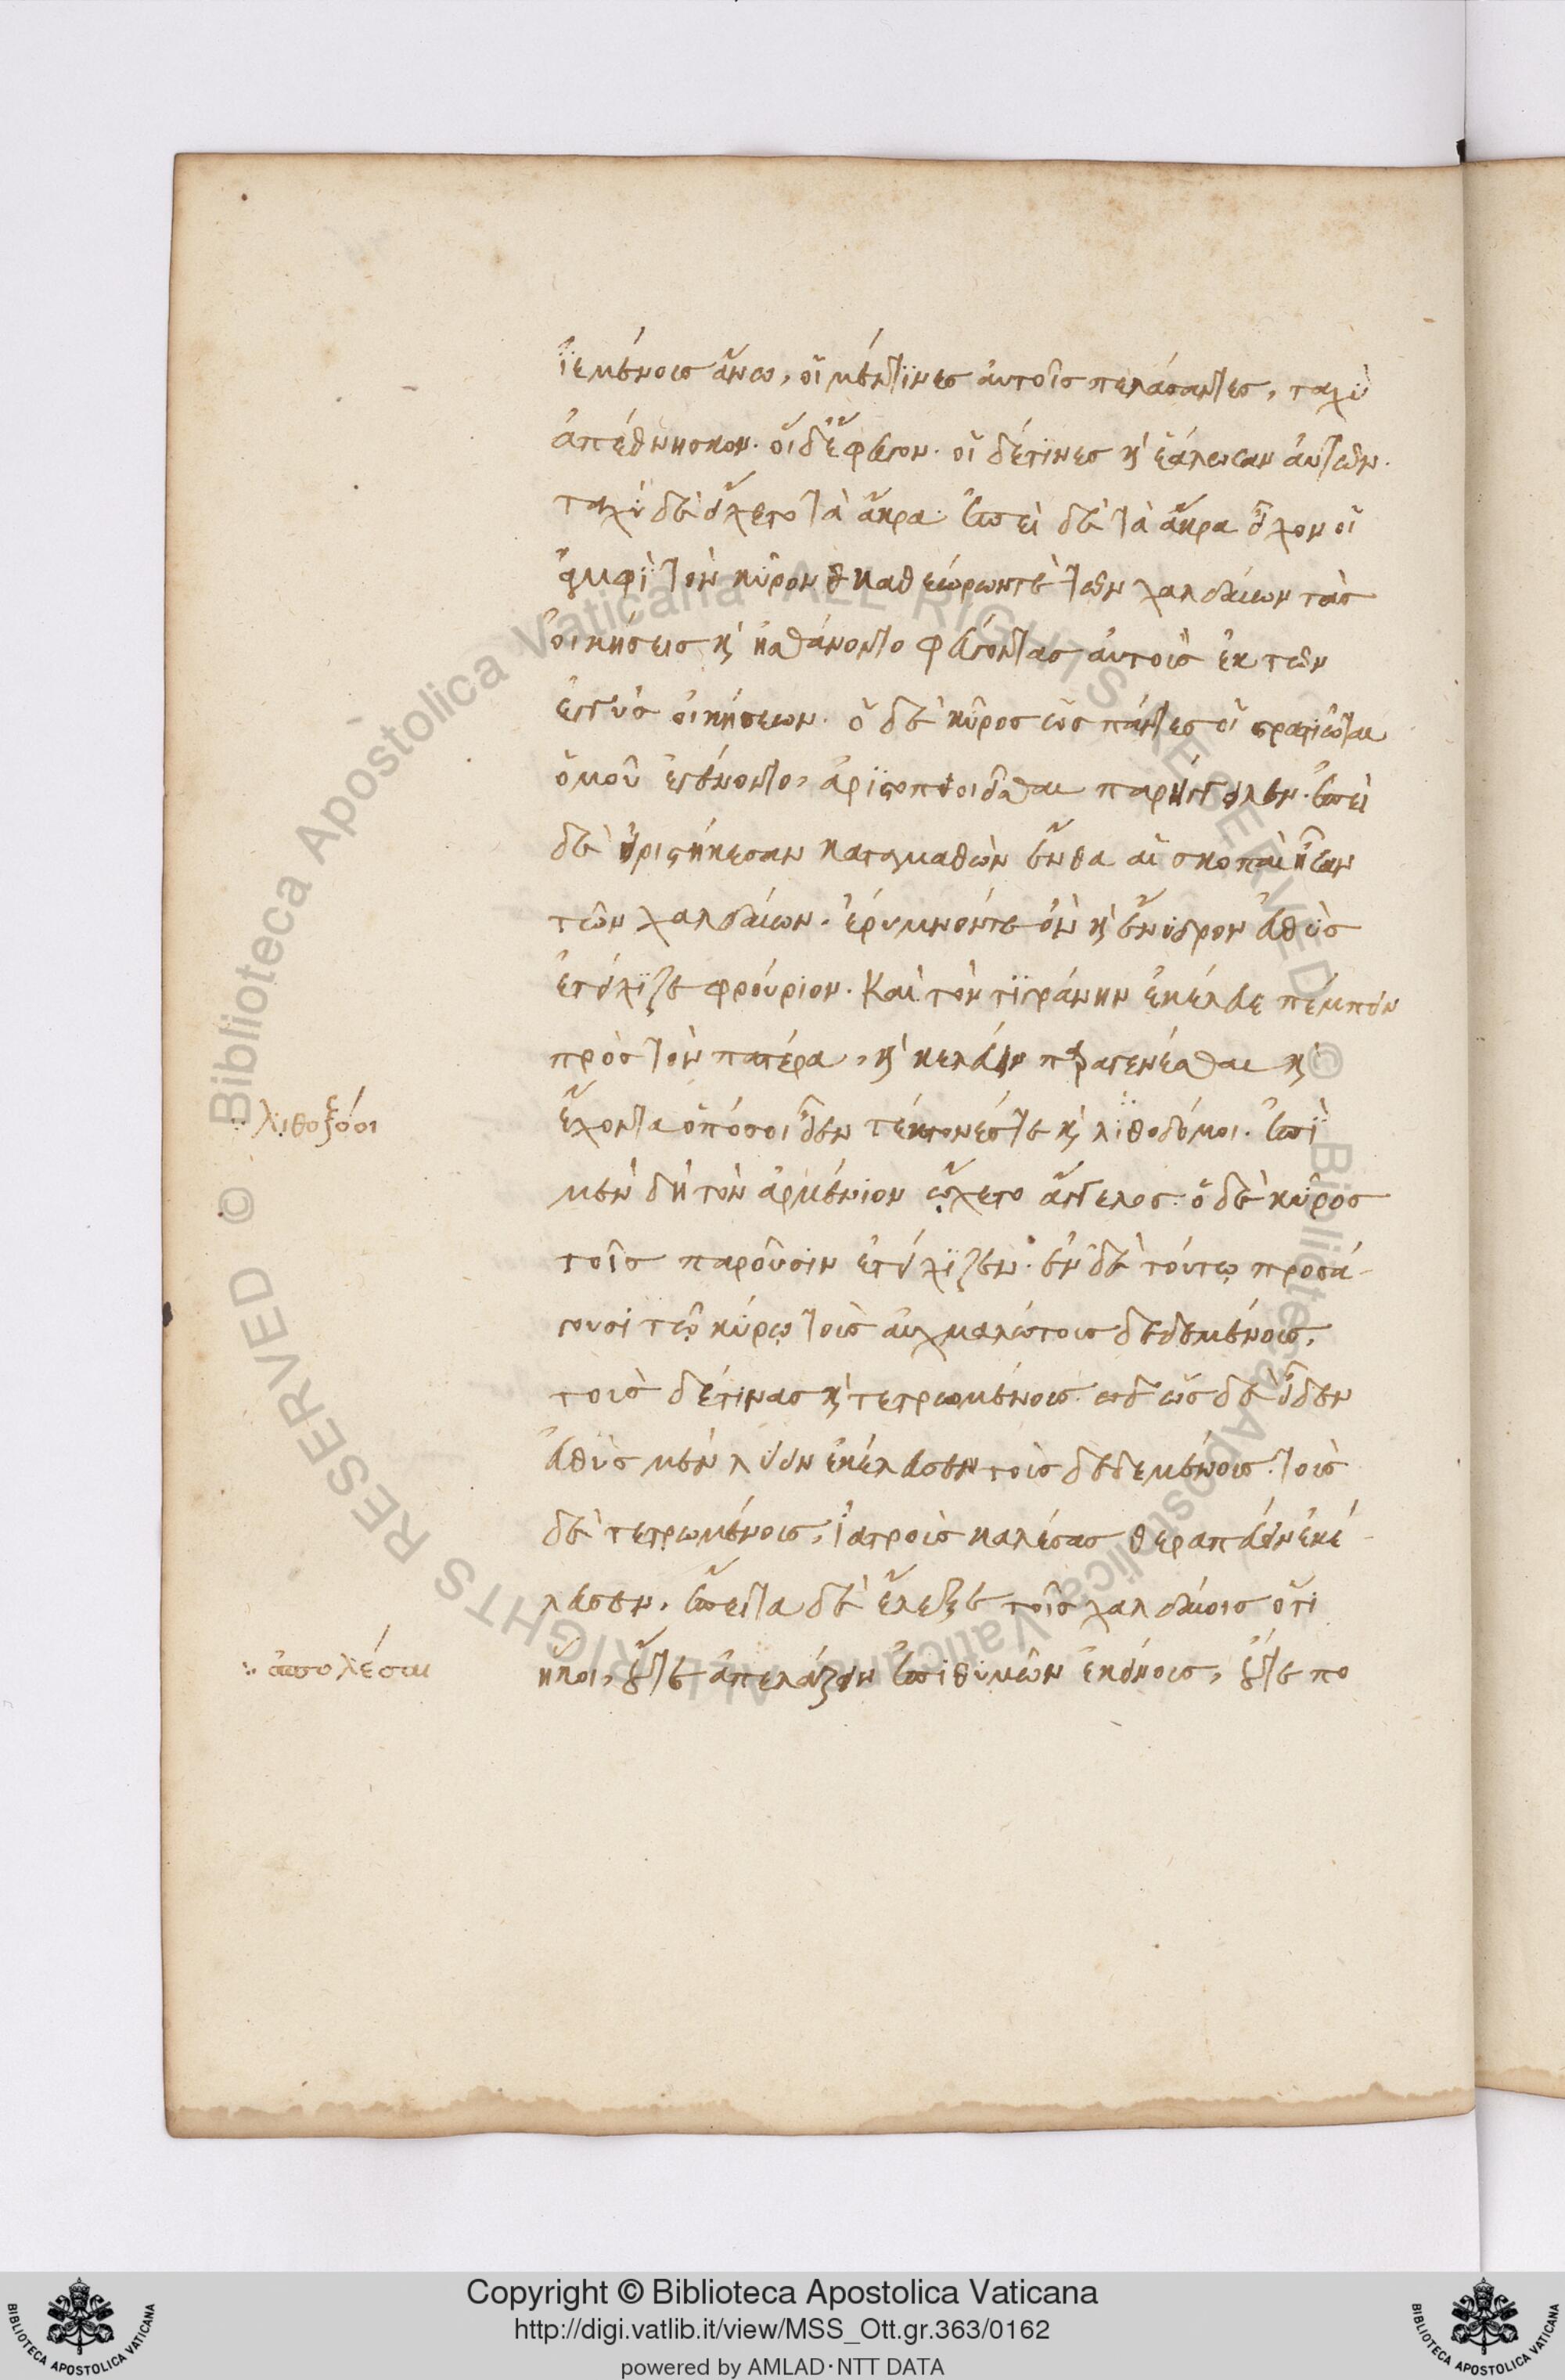 ἱεμένους ἄνω, οἱ μέν τινες αὐτοῖς πελάσαντες, ταχὺ
ἀπέθνησκον. οἱ δ' ἔφευγον. οἱ δέ τινες κ' ἑάλωσαν αὐτῶν.
ταχὺ δὲ εἴχετο τὰ ἄκρα. ἐπεὶ δὲ τὰ ἄκρα εἶχον οἱ
ἀμφὶ τὸν κῦρον καθεώρων τὲ τῶν χαλδαίων τὰς
οἰκήσεις κ' ἠσθάνοντο φεύγοντας αὐτοὺς ἐκ τῶν
ἐγγὺς οἰκήσεων. ὁ δὲ κῦρος ὡς πάντες οἱ στρατιῶται
ὁμοῦ ἐγένοντο, ἀριστοποιεῖσθαι παρήγγειλεν. ἐπεὶ
δὲ ἠριστήκεσαν καταμαθὼν ἔνθα αἱ σκοπαὶ ἦσαν
τῶν χαλδαίων. ἐρυμνόν τε ὂν κ' ἔνυδρον εὐθὺς
ἐτείχιζε φρούριον. Καὶ τὸν τιγράνην ἐκέλευε πέμπειν
πρὸς τὸν πατέρα, κ' κελεύειν παραγενέσθαι κ'
ἔχοντα ὁπόσοι εἶεν τέκτονές τε κ' λιθοδόμοι. ἐπὶ
μὲν δὴ τὸν ἀρμένιον ᾤχετο ἄγγελος. ὁ δὲ κῦρος
τοῖς παροῦσιν ἐτείχιζεν. ἐν δὲ τούτῳ προσά-
γουσι τῷ κύρῳ τοὺς αἰχμαλώτους δεδεμένους,
τοὺς δέ τινας κ' τετρωμένους. ὡς δὲ εἶδεν
εὐθὺς μὲν λύειν ἐκέλευσεν τοὺς δεδεμένους. τοὺς
δὲ τετρωμένους, ἰατροὺς καλέσας θεραπεύειν ἐκέ-
λευσεν. ἔπειτα δὲ ἔλεξε τοῖς χαλδαίοις ὅτι
ἥκοι, οὔτε ἀπελάζειν ἐπιθυμῶν ἐκείνους, οὔτε πο
λιθοξόοι
ἀπολέσαι
Copyright © Biblioteca Apostolica Vaticana
http://digi.vatlib.it/view/MSS_Ott.gr.363/0162
powered by AMLAD·NTT DATA
BIBLIOTECA APOSTOLICA VATICANA
BIBLIOTECA APOSTOLICA VATICANA
© Biblioteca Apostolica Vaticana ALL RIGHTS RESERVED
© Biblioteca Apostolica Vaticana ALL RIGHTS RESERVED